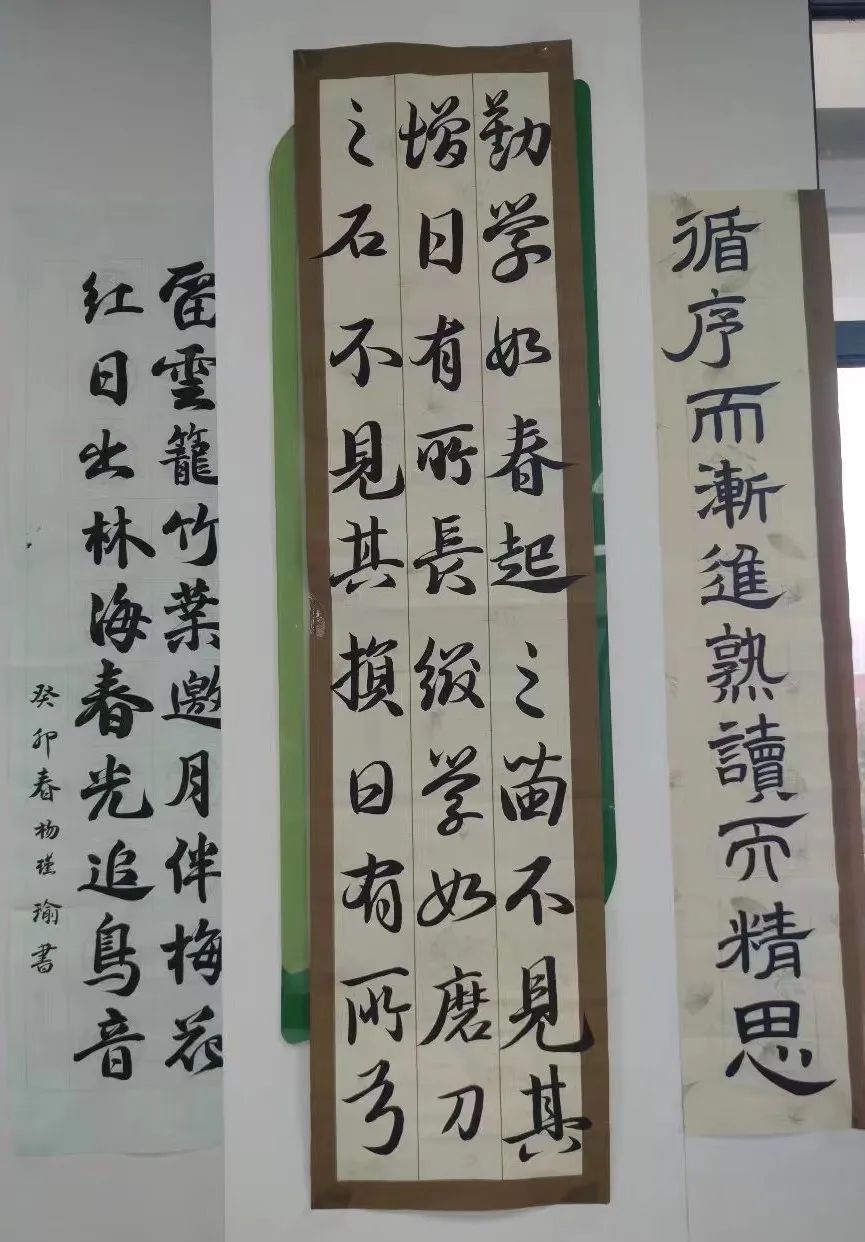 循序而漸進熟讀而精思
勤学如春起之苗不見其
增日有所長缀学如磨刀
之石不見其損日有所亏
留雲籠竹葉邀月伴梅花
红日出林海春光追鳥音
癸卯春杨瑾瑜書